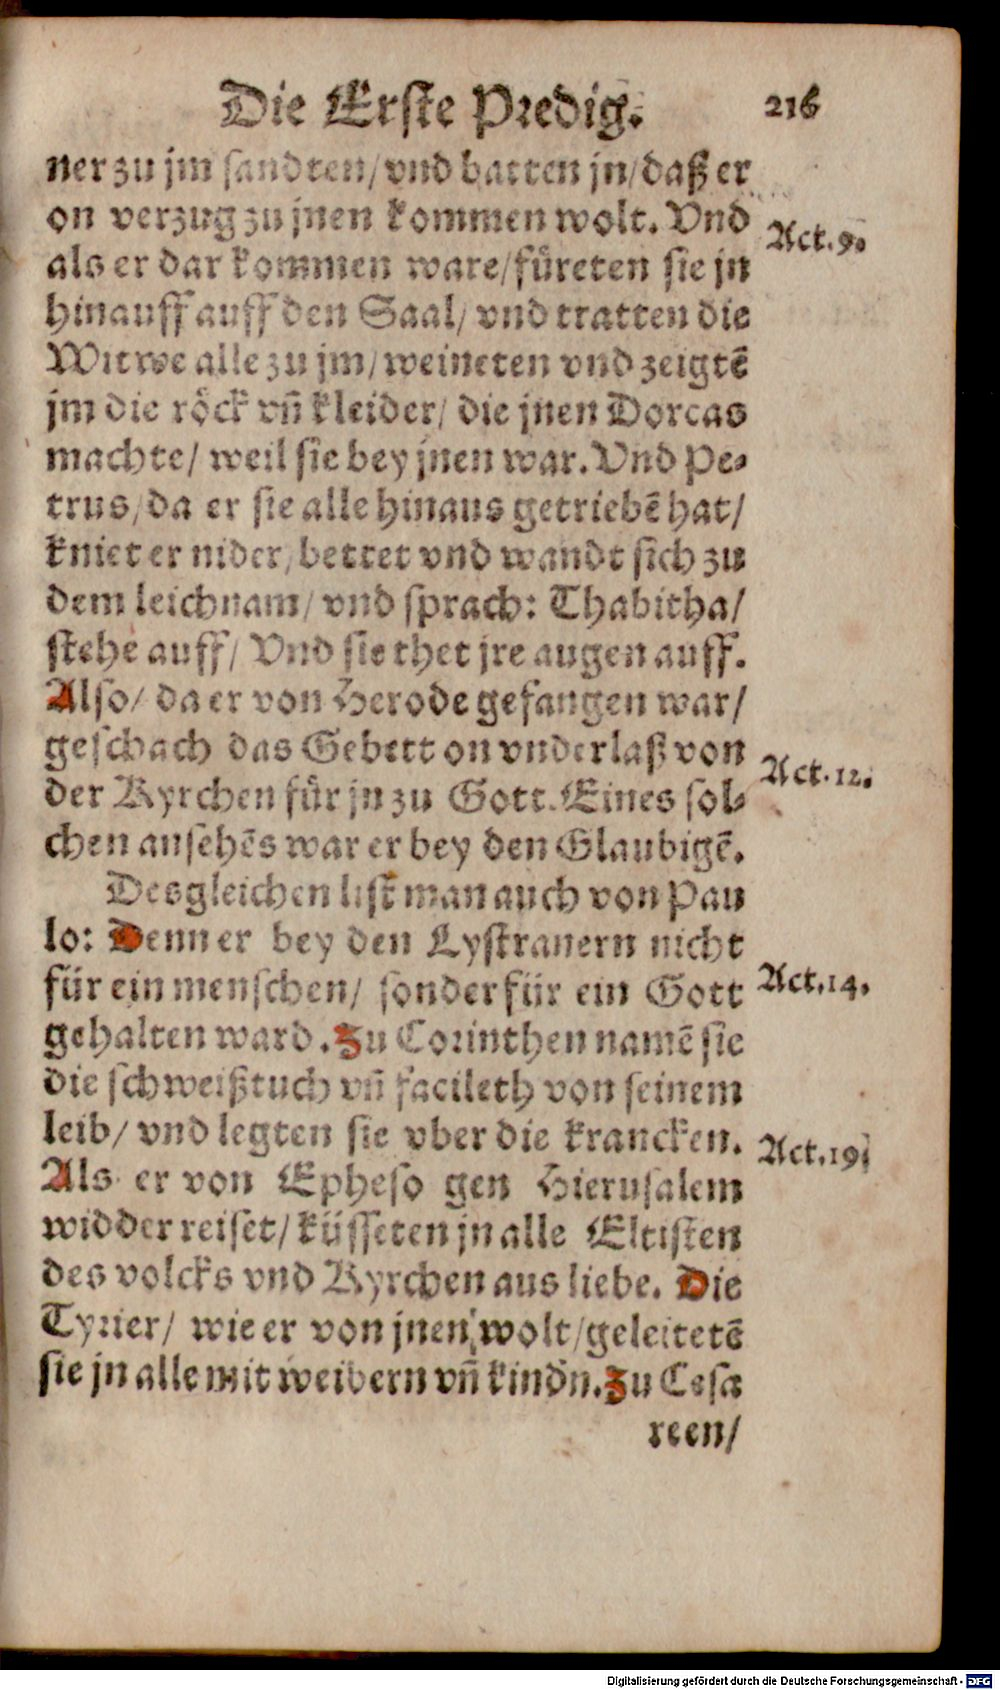 Die Erste Predig. 216
ner zu jm sandten/ vnd batten jn/ daß er
on verzug zu jnen kommen wolt. Vnd
Act. 9.
als er dar kommen ware/ füreten sie jn
hinauff auff den Saal/ vnd tratten die
Witwe alle zu jm/ weineten vnd zeigtē
jm die röck vñ kleider/ die jnen Dorcas
machte/ weil sie bey jnen war. Vnd Pe-
trus/ da er sie alle hinaus getriebē hat/
kniet er nider/ bettet vnd wandt sich zu
dem leichnam/ vnd sprach: Thabitha/
stehe auff/ Vnd sie thet jre augen auff.
Also/ da er von Herode gefangen war/
geschach das Gebett on vnderlaß von
Act. 12.
der Kyrchen für jn zu Gott. Eines sol-
chen ansehēs war er bey den Glaubigē.
Desgleichen list man auch von Pau
lo: Denn er bey den Lystranern nicht
für ein menschen/ sonder für ein Gott
Act. 14.
gehalten ward. Zu Corinthen namē sie
die schweißtuch vñ facileth von seinem
leib/ vnd legten sie vber die krancken.
Act. 19.
Als er von Epheso gen Hierusalem
widder reiset/ küsseten jn alle Eltisten
des volcks vnd Kyrchen aus liebe. Die
Tyrier/ wie er von jnen wolt/ geleitetē
sie jn alle mit weibern vñ kindn. Zu Cesa
reen/
Digitalisierung gefördert durch die Deutsche Forschungsgemeinschaft - DFG